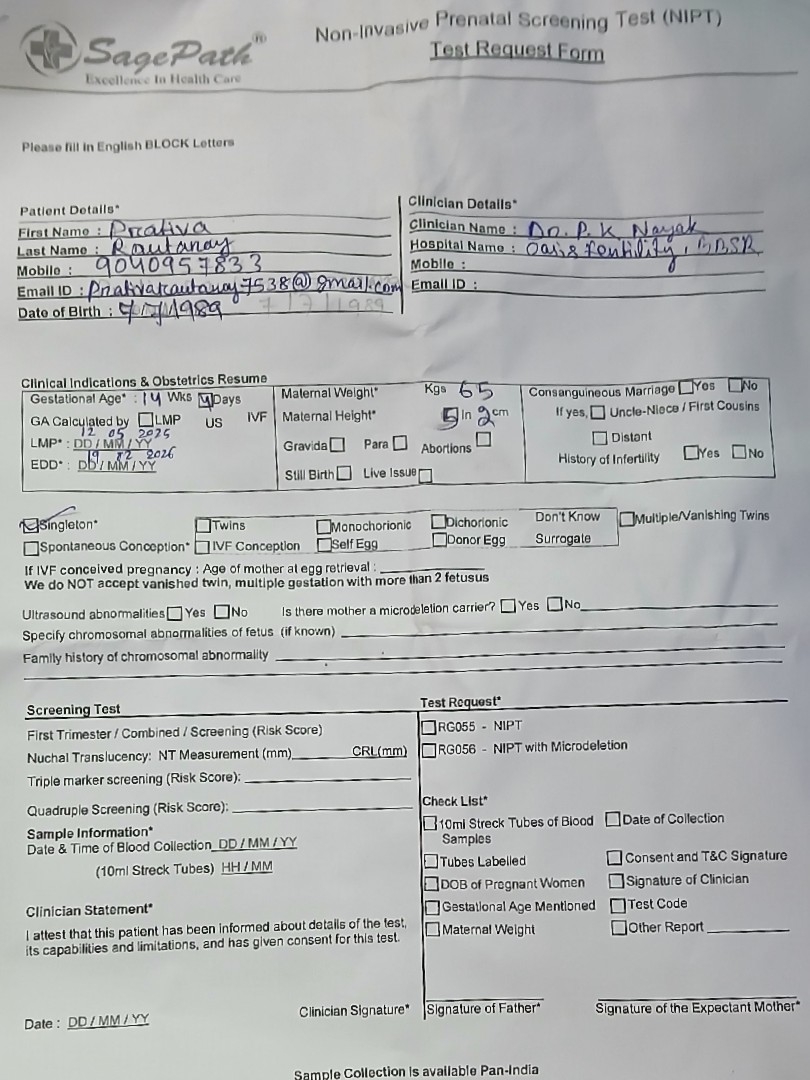 SagePath®
Excellence In Health Care
Non-Invasive Prenatal Screening Test (NIPT)
Test Request Form
Please fill in English BLOCK Letters
Patient Details*
First Name : Prrativa
Last Name : Rautaray
Mobile : 9040957833
Email ID : Prrativarautaray7538@gmail.com
Date of Birth : 7/7/1989 7/7/1989
Clinician Details*
Clinician Name : Dr. P. K Nayak
Hospital Name : Oasis Fertility, BBSR
Mobile :
Email ID :
Clinical Indications & Obstetrics Resume
Gestational Age* : 14 Wks 4 Days
GA Calculated by LMP US IVF
12 05 2025
LMP* : DD / MM / YY
19 02 2026
EDD* : DD / MM / YY
Maternal Weight* Kgs 65
Maternal Height* 5 in 2 cm
Gravida Para Abortions
Still Birth Live Issue
Consanguineous Marriage Yes No
If yes, Uncle-Niece / First Cousins
Distant
History of Infertility Yes No
Singleton* Twins Monochorionic Dichorionic Don't Know Multiple/Vanishing Twins
Spontaneous Conception* IVF Conception Self Egg Donor Egg Surrogate
If IVF conceived pregnancy : Age of mother at egg retrieval :
We do NOT accept vanished twin, multiple gestation with more than 2 fetusus
Ultrasound abnormalities Yes No Is there mother a microdeletion carrier? Yes No
Specify chromosomal abnormalities of fetus (if known)
Family history of chromosomal abnormality
Screening Test
First Trimester / Combined / Screening (Risk Score)
Nuchal Translucency: NT Measurement (mm) CRL(mm)
Triple marker screening (Risk Score):
Quadruple Screening (Risk Score):
Sample Information*
Date & Time of Blood Collection DD / MM / YY
(10ml Streck Tubes) HH / MM
Clinician Statement*
I attest that this patient has been informed about details of the test,
its capabilities and limitations, and has given consent for this test.
Date : DD / MM / YY
Clinician Signature*
Test Request*
RG055 - NIPT
RG056 - NIPT with Microdeletion
Check List*
10ml Streck Tubes of Blood Samples
Date of Collection
Tubes Labelled
Consent and T&C Signature
DOB of Pregnant Women
Signature of Clinician
Gestational Age Mentioned
Test Code
Maternal Weight
Other Report
Signature of Father*
Signature of the Expectant Mother*
Sample Collection is available Pan-India